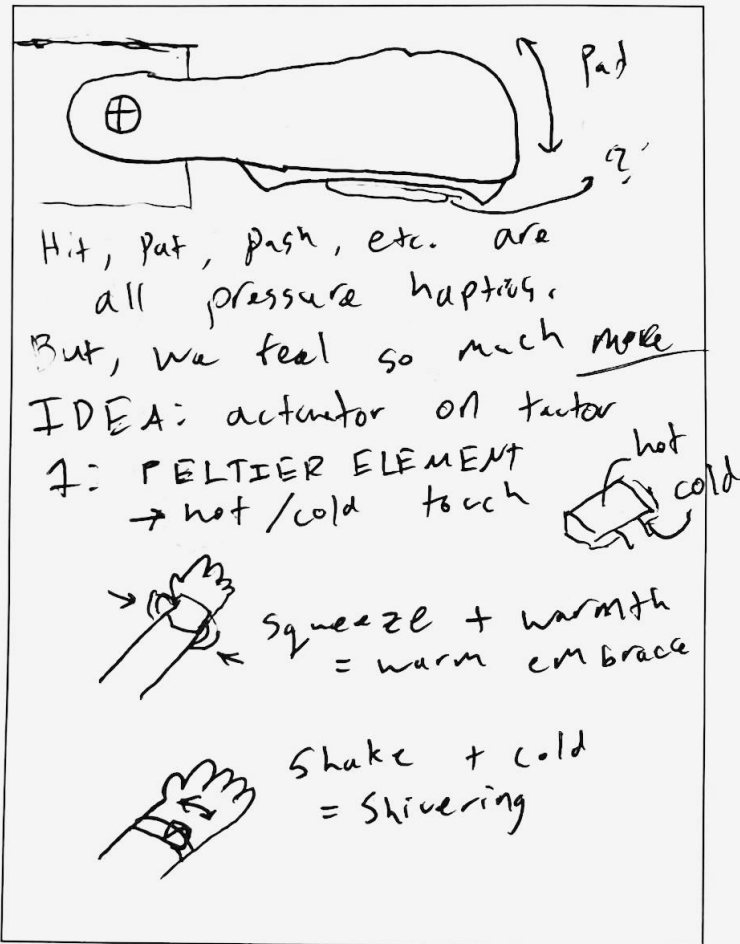 Pat
?
Hit, Pat, push, etc. are
all pressure haptics.
But, we feel so much more
IDEA: actuator on tactor
1: PELTIER ELEMENT
→ hot/cold touch
hot
cold
squeeze + warmth
= warm embrace
Shake + cold
= Shivering